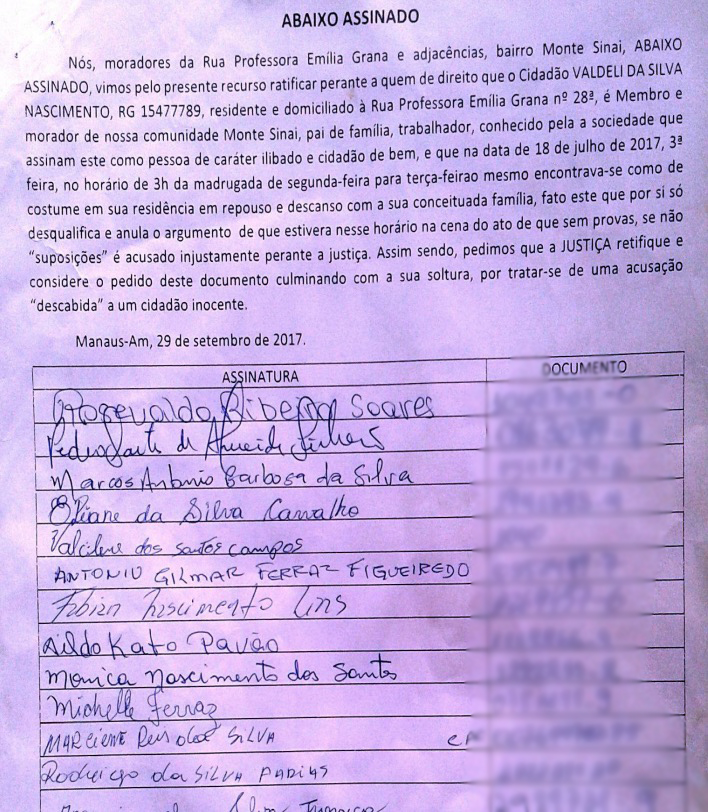 ABAIXO ASSINADO
Nós, moradores da Rua Professora Emília Grana e adjacências, bairro Monte Sinai, ABAIXO
ASSINADO, vimos pelo presente recurso ratificar perante a quem de direito que o Cidadão VALDELI DA SILVA
NASCIMENTO, RG 15477789, residente e domiciliado à Rua Professora Emília Grana nº 28ª, é Membro e
morador de nossa comunidade Monte Sinai, pai de família, trabalhador, conhecido pela a sociedade que
assinam este como pessoa de caráter ilibado e cidadão de bem, e que na data de 18 de julho de 2017, 3ª
feira, no horário de 3h da madrugada de segunda-feira para terça-feirao mesmo encontrava-se como de
costume em sua residência em repouso e descanso com a sua conceituada família, fato este que por si só
desqualifica e anula o argumento de que estivera nesse horário na cena do ato de que sem provas, se não
"suposições" é acusado injustamente perante a justiça. Assim sendo, pedimos que a JUSTIÇA retifique e
considere o pedido deste documento culminando com a sua soltura, por tratar-se de uma acusação
"descabida" a um cidadão inocente.
Manaus-Am, 29 de setembro de 2017.
ASSINATURA DOCUMENTO
Ribeiro Soares
de Almeida
Marcos Antonio Barbosa da Silva
Eliane da Silva Carvalho
Valcilene dos santos campos
ANTONIO GILMAR FERRAZ FIGUEIREDO
Fabian Nascimento Lins
Aildo Kato Pavão
Monica nascimento dos Santos
Michelle Ferraz
MARCIENE SILVA
Rodrigo da SILVA